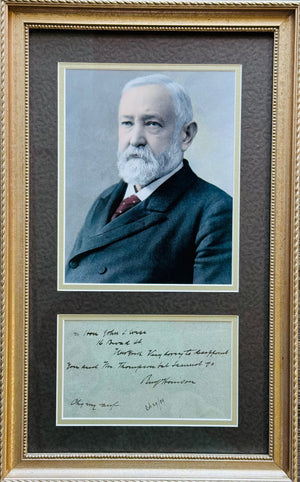 Hon John S Wise
16 Broad St
New York Very sorry to disappoint
you and Mr. Thompson but cannot go
Benj Harrison